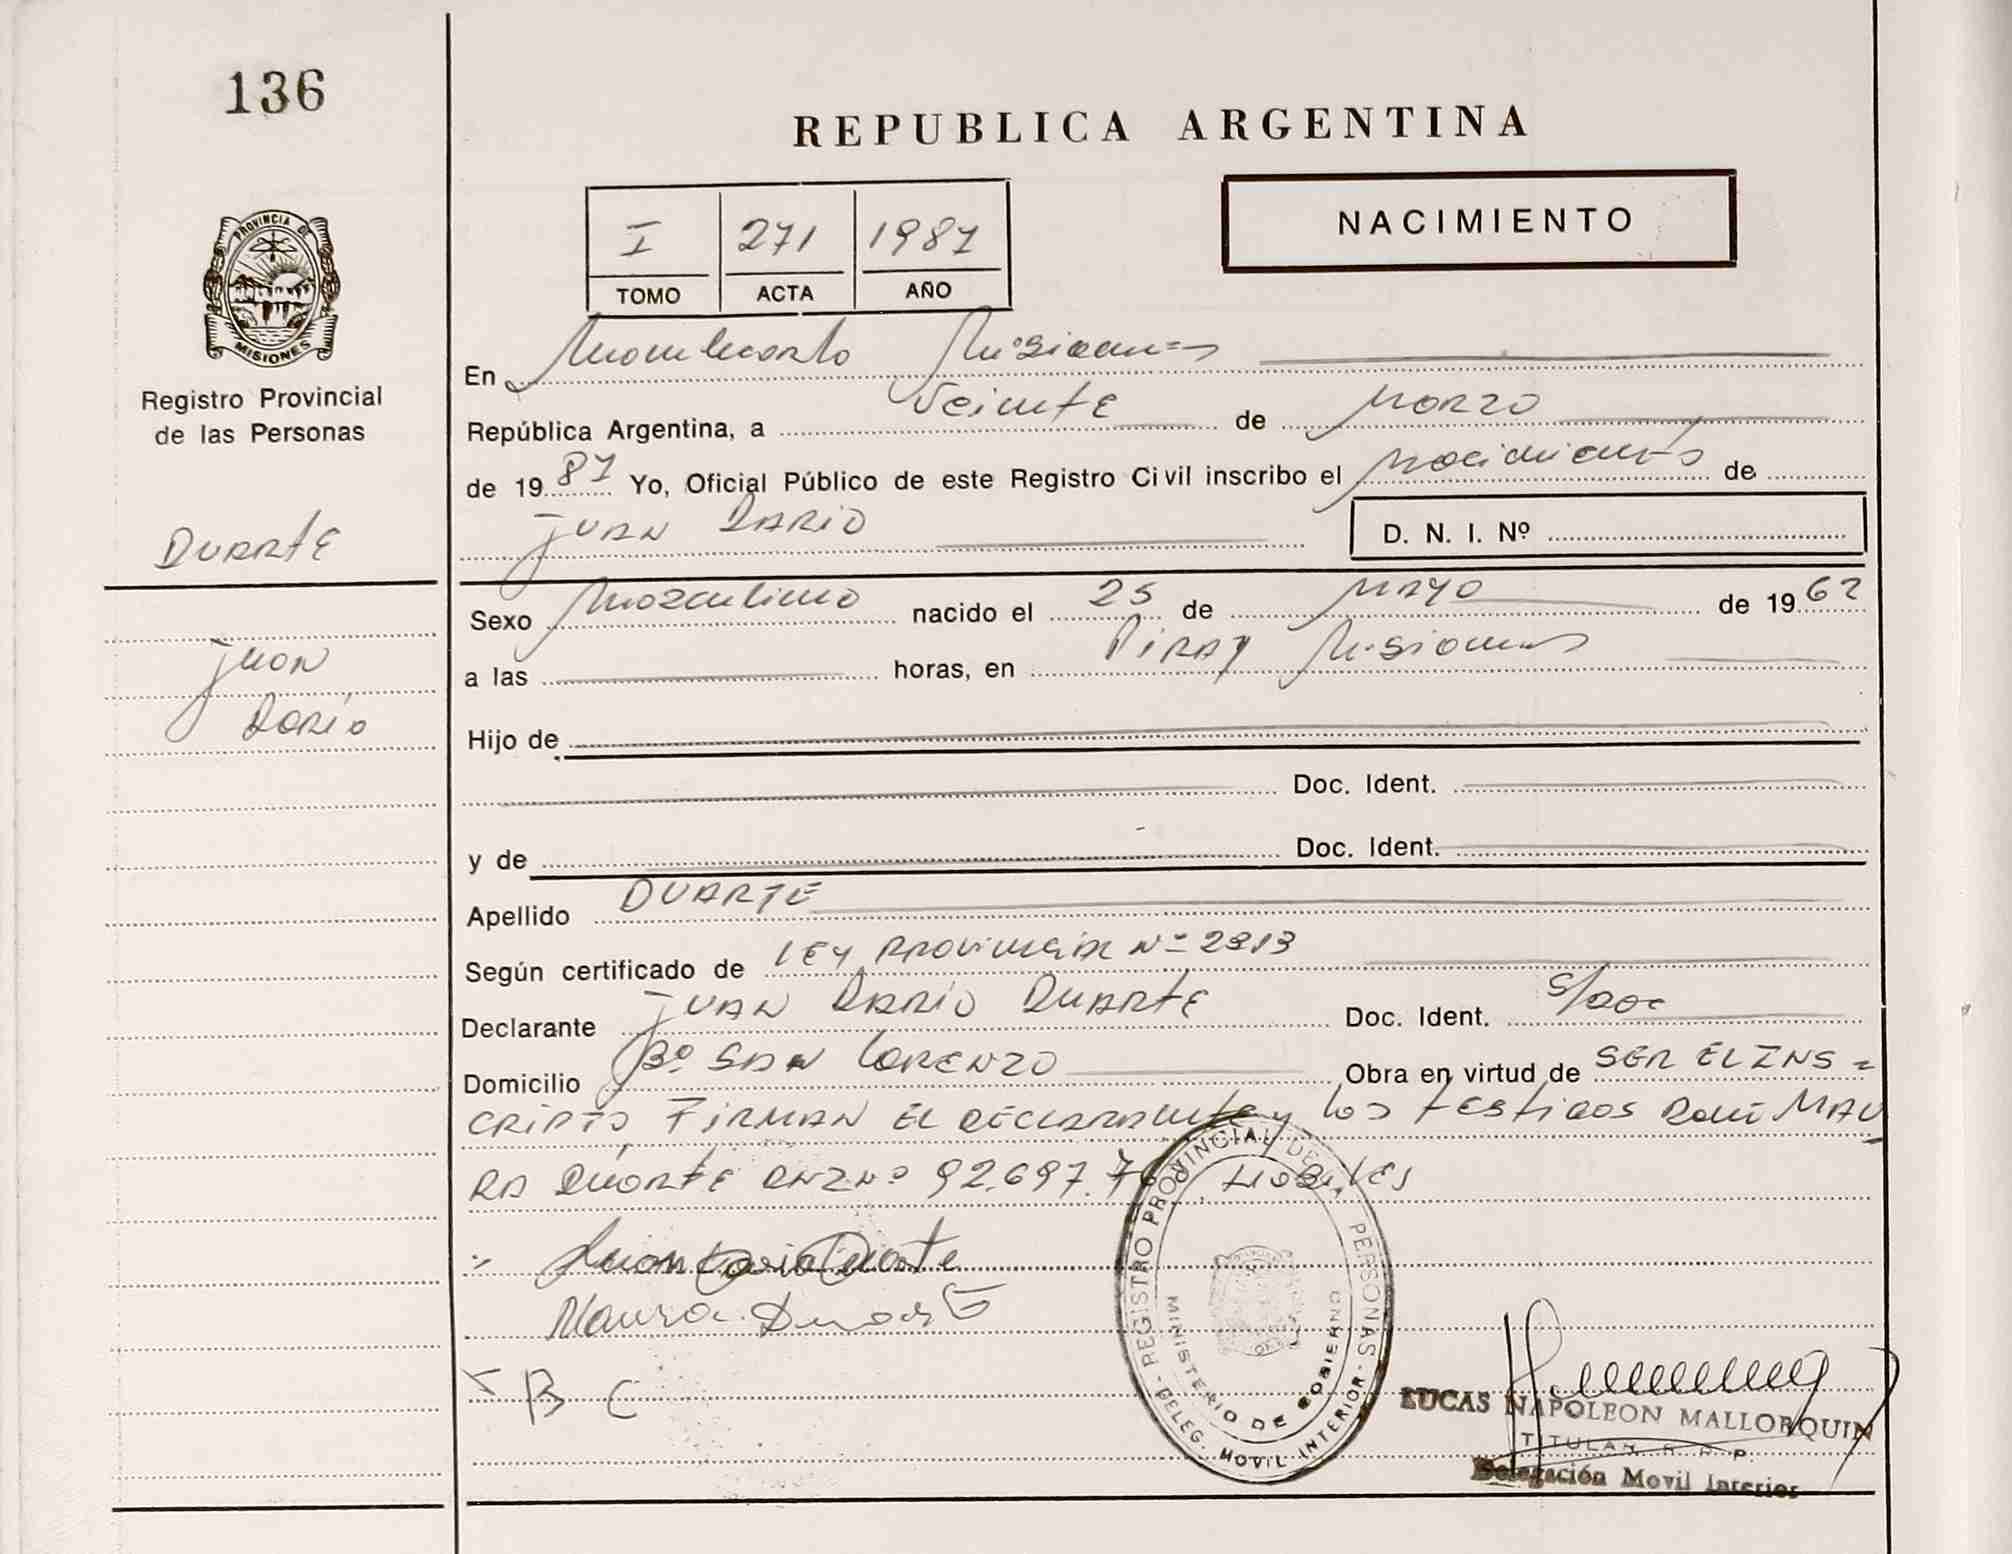 136
REPUBLICA ARGENTINA
I 271 1987
TOMO ACTA AÑO
NACIMIENTO
PROVINCIA DE
MISIONES
Registro Provincial
de las Personas
En Montecarlo Misiones
República Argentina, a Veinte de Marzo
de 1987 Yo, Oficial Público de este Registro Civil inscribo el nacimiento de
JUAN DARIO
D. N. I. Nº
DUARTE
Juan
Darío
Sexo Masculino nacido el 25 de MAYO de 1962
a las horas, en PIRAY Misiones
Hijo de
Doc. Ident.
y de Doc. Ident.
Apellido DUARTE
Según certificado de LEY PROVINCIAL Nº 2313
Declarante JUAN DARIO DUARTE Doc. Ident. S/DOC
Domicilio Bº SAN LORENZO Obra en virtud de SER EL INS=
CRIPTO, FIRMAN EL DECLARANTE y los testigos MAU
RA DUARTE DNI Nº 92.697.76 HABILES
Juan Dario Duarte
Maura Duarte
B C
REGISTRO PROVINCIAL DE PERSONAS
MINISTERIO DE GOBIERNO
DELEG. MOVIL INTERIOR
LUCAS NAPOLEON MALLORQUIN
TITULAR R. P.
Delegación Movil Interior